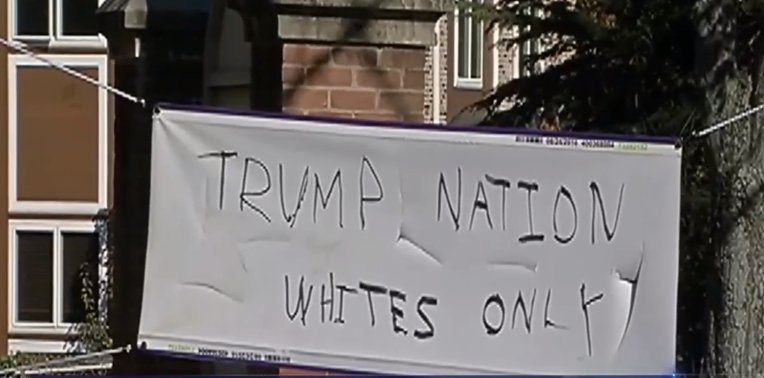 TRUMP NATION
WHITES ONLY